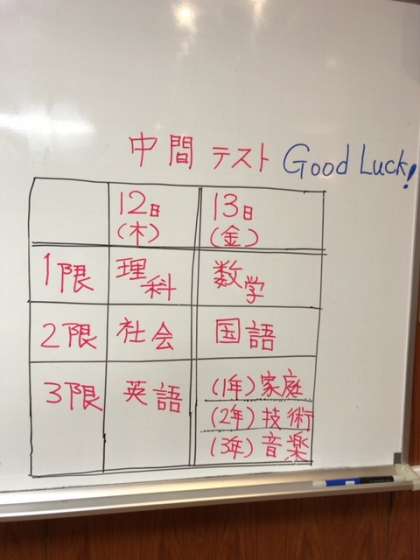 中間 テスト Good Luck!
12日 13日
(木) (金)
1限 理科 数学
2限 社会 国語
3限 英語 (1年) 家庭
(2年) 技術
(3年) 音楽